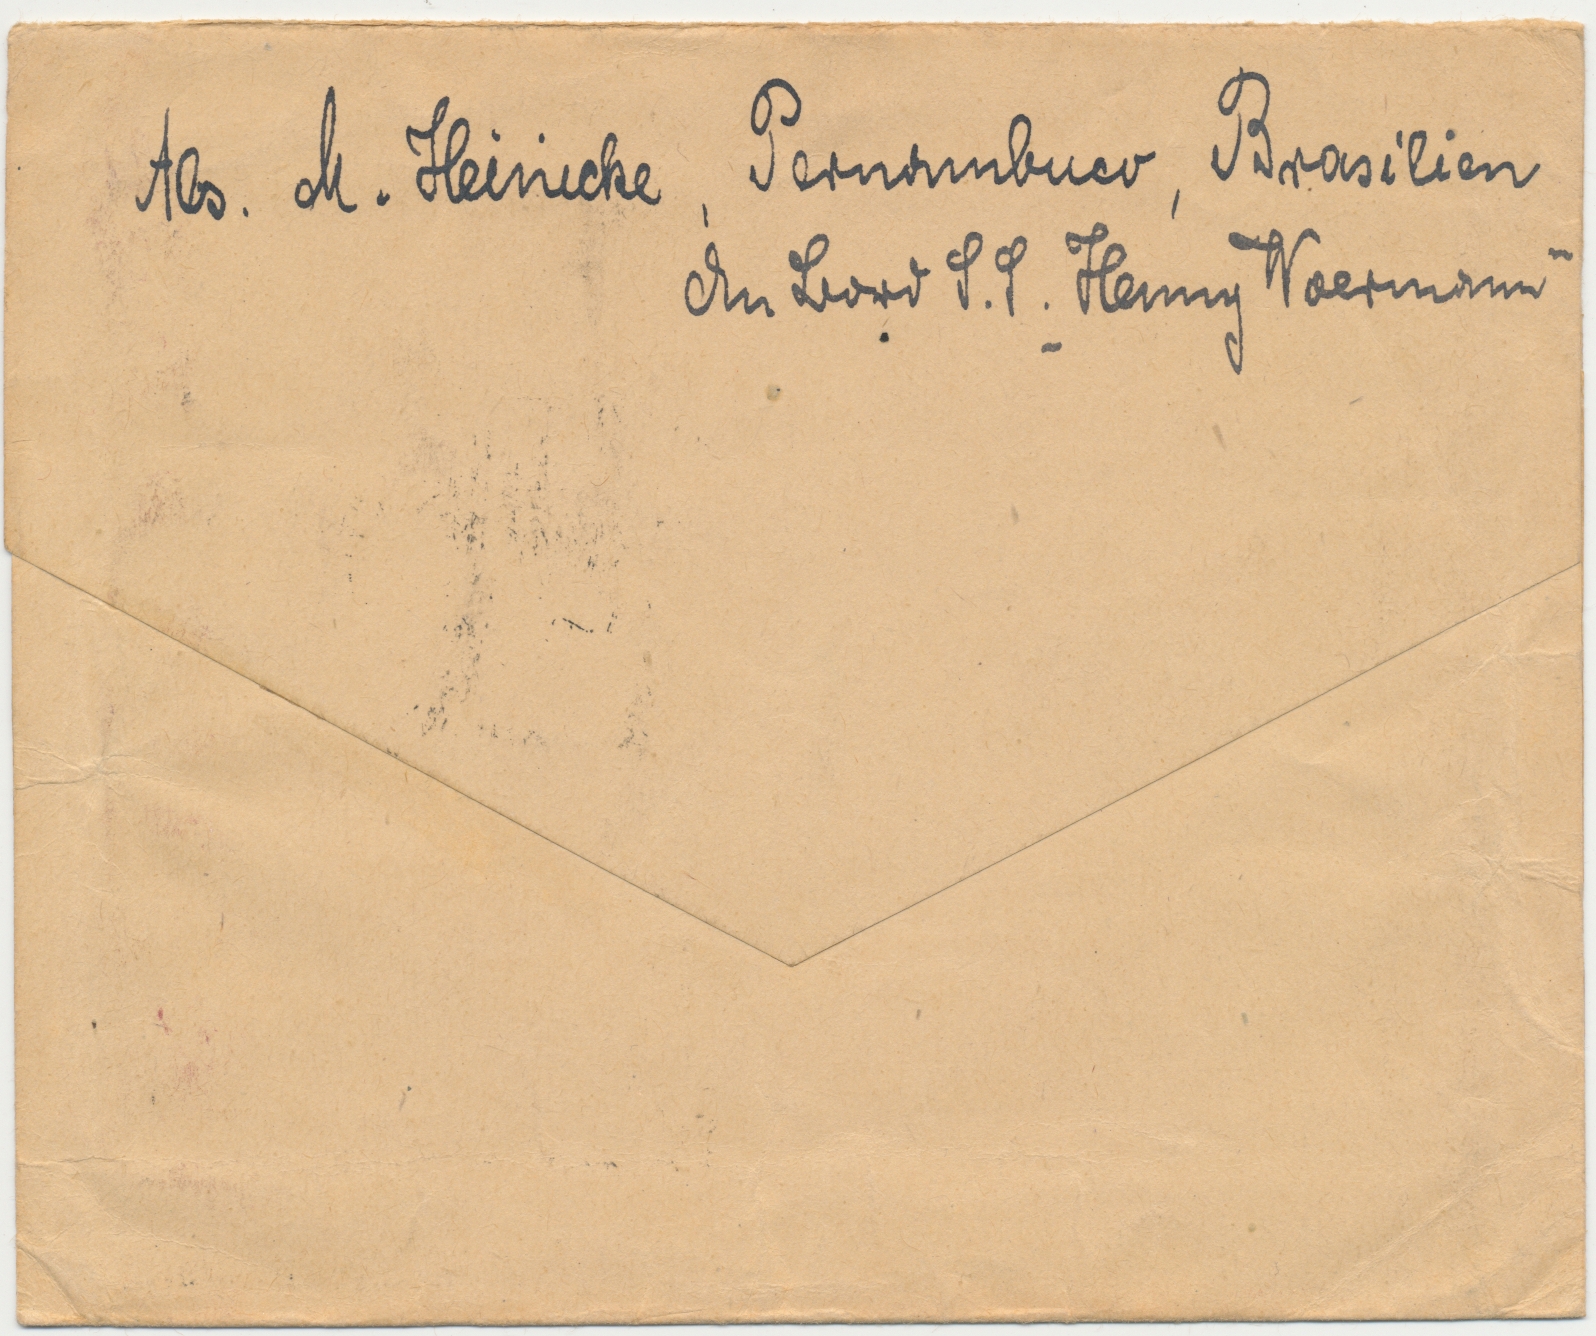 Abs. M. Heinicke, Pernambuco, Brasilien
An Bord S.S. „Henny Woermann“